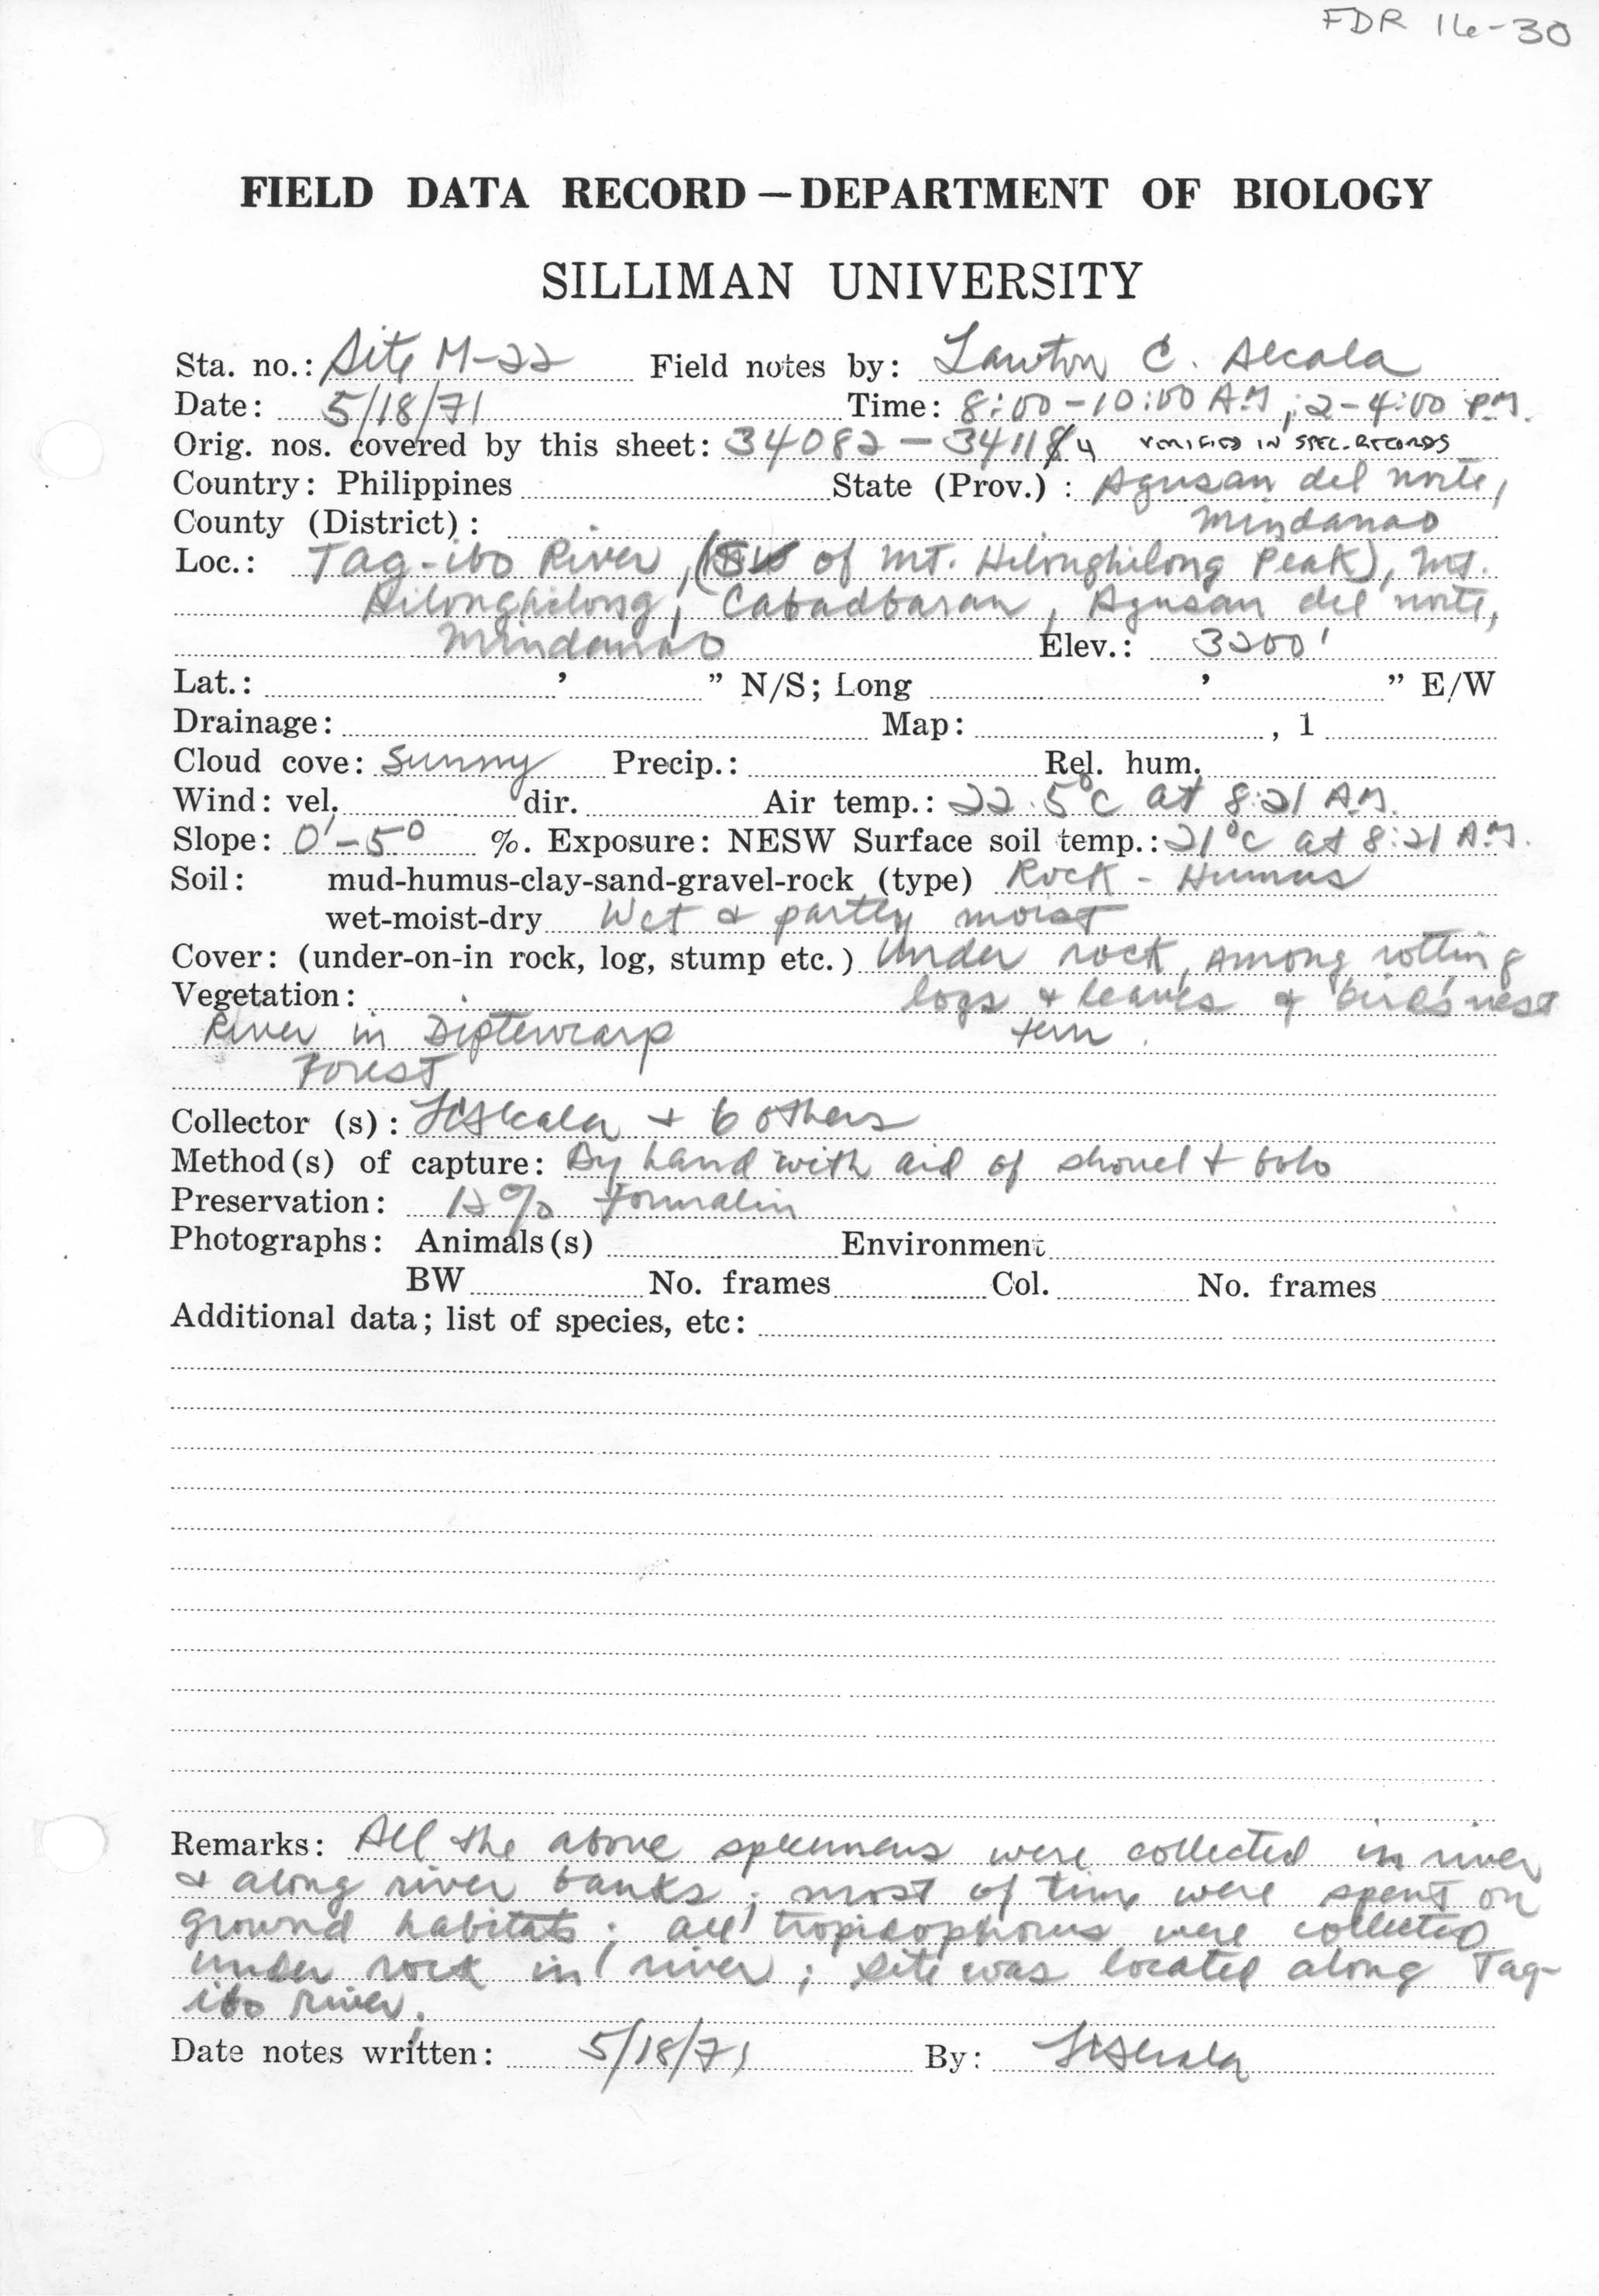 FDR 16-30
FIELD DATA RECORD — DEPARTMENT OF BIOLOGY
SILLIMAN UNIVERSITY
Sta. no.: Site M-22 Field notes by: Lawton C. Alcala
Date: 5/18/71 Time: 8:00-10:00 A.M.; 2-4:00 P.M.
Orig. nos. covered by this sheet: 34082 - 34114 VERIFIED IN SPEC. RECORDS
Country: Philippines State (Prov.) : Agusan del norte,
County (District) : Mindanao
Loc.: Tag-ibo River, ( of Mt. Hilonghilong Peak), Mt.
Hilonghilong, Cabadbaran, Agusan del norte,
Mindanao Elev.: 3200'
Lat.: ' " N/S; Long ' " E/W
Drainage: Map: , 1
Cloud cove: Sunny Precip.: Rel. hum.
Wind: vel. dir. Air temp.: 22.5°C at 8:21 A.M.
Slope: 0°-5° %. Exposure: NESW Surface soil temp.: 21°C at 8:21 A.M.
Soil: mud-humus-clay-sand-gravel-rock (type) Rock - Humus
wet-moist-dry Wet & partly moist
Cover: (under-on-in rock, log, stump etc.) Under rock, among rotting
Vegetation: logs & leaves & bird's nest
River in Dipterocarp fern.
Forest
Collector (s): LCAlcala + 6 others
Method(s) of capture: By hand with aid of shovel + bolo
Preservation: 12% Formalin
Photographs: Animals(s) Environment
BW No. frames Col. No. frames
Additional data; list of species, etc:
Remarks: All the above specimens were collected in river
& along river banks; most of time were spent on
ground habitats; all tropidophorus were collected
under rock in river; site was located along Tag-
ibo river.
Date notes written: 5/18/71 By: LCAlcala